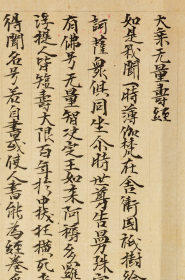 大乘无量壽經
如是我聞一時薄伽梵在舍衛國祇樹給
訶薩衆俱同坐尒時世尊告曼殊
有佛号无量智決定王如來阿耨多羅
浮提人皆短壽大限百年於中夭枉橫死
得聞名号若自書或使人書能為經卷